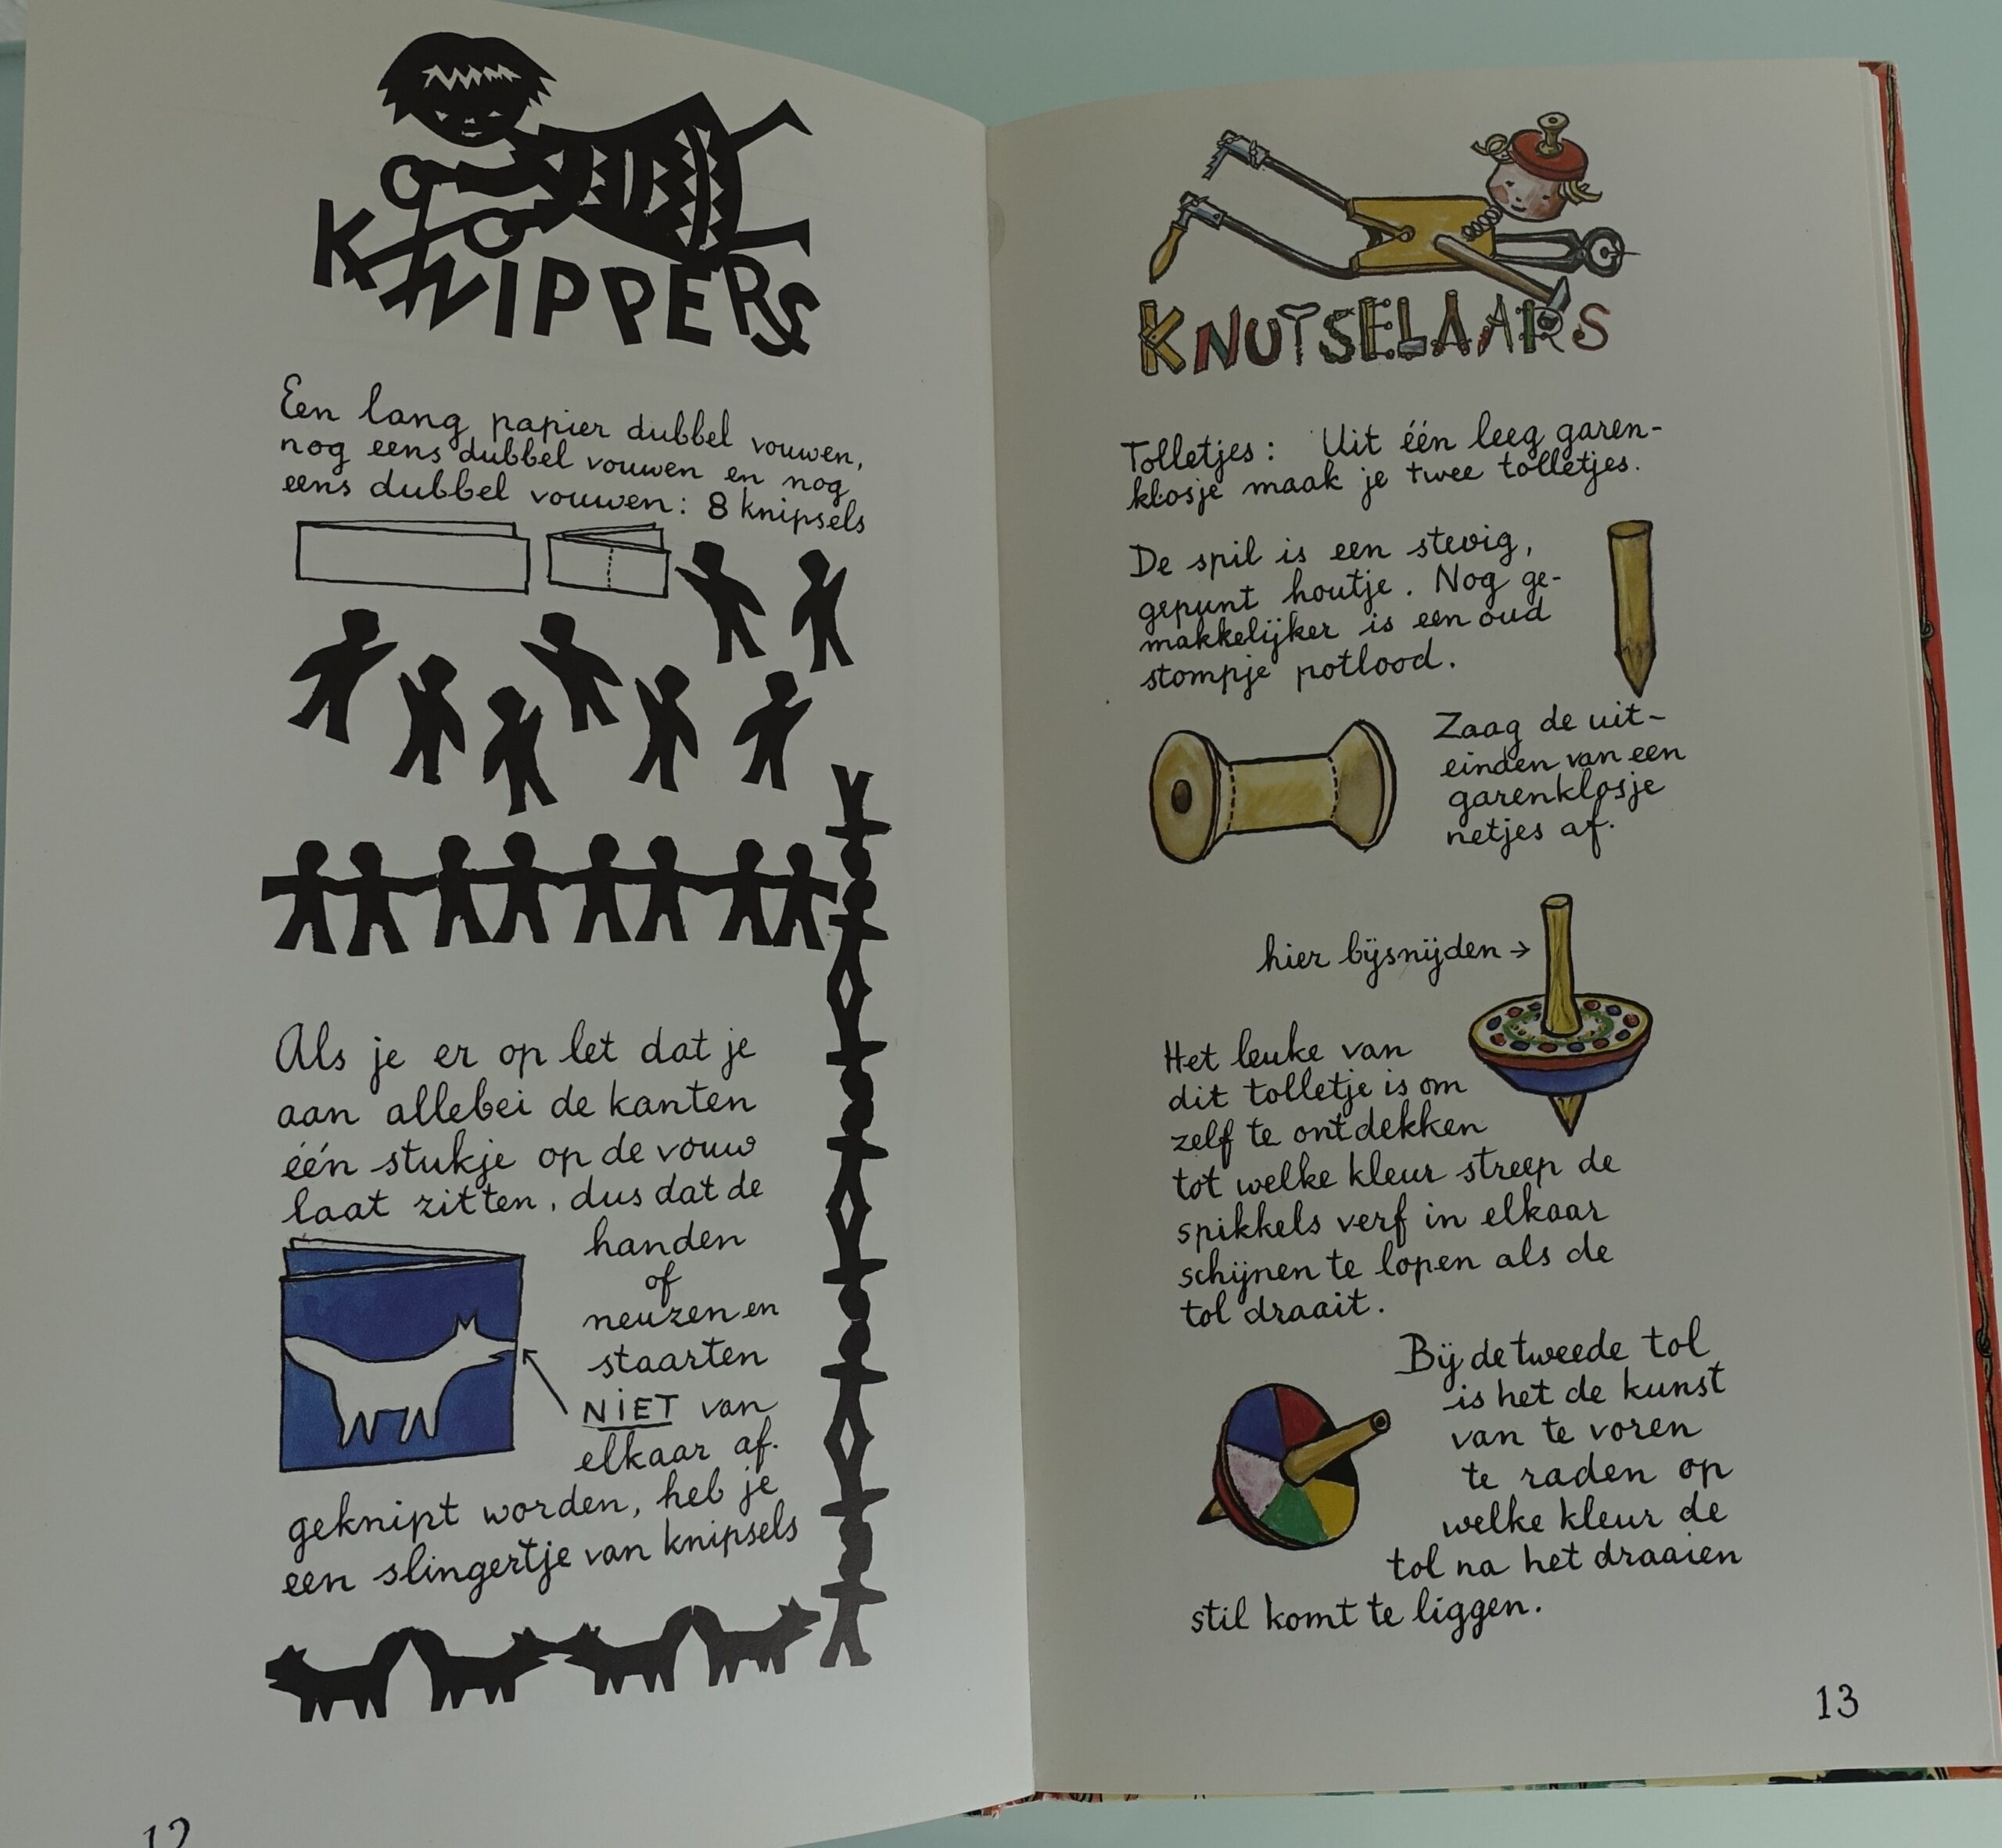 KNIPPERS
Een lang papier dubbel vouwen,
nog eens dubbel vouwen en nog
eens dubbel vouwen: 8 knipsels
Als je er op let dat je
aan allebei de kanten
één stukje op de vouw
laat zitten, dus dat de
handen
of
neuzen en
staarten
NIET van
elkaar af.
geknipt worden, heb je
een slingertje van knipsels
12
KNUTSELAARS
Tolletjes: Uit één leeg garen-
klosje maak je twee tolletjes.
De spil is een stevig,
gepunt houtje. Nog ge-
makkelijker is een oud
stompje potlood.
Zaag de uit-
einden van een
garenklosje
netjes af.
hier bijsnijden →
Het leuke van
dit tolletje is om
zelf te ontdekken
tot welke kleur streep de
spikkels verf in elkaar
schijnen te lopen als de
tol draait.
Bij de tweede tol
is het de kunst
van te voren
te raden op
welke kleur de
tol na het draaien
stil komt te liggen.
13